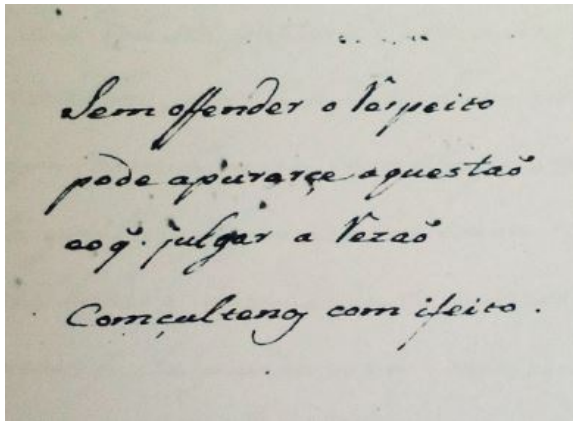 Sem offender o Respeito
pode apurarçe aquestaõ
aoq̃. julgar a Rezaõ
Comçulteng com ifeito.